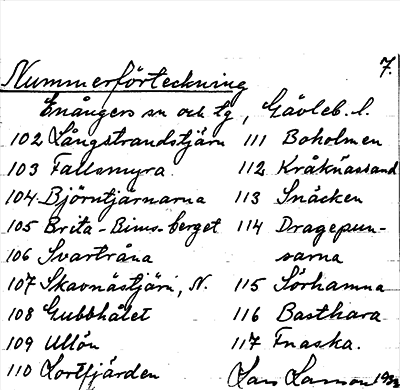 7.
Nummerförteckning
Enångers sn och tg, Gävleb. l.
102 Långstrandstjärn
103 Fallsmyra.
104 Björntjärnarna
105 Brita-Bims-berget
106 Svartråna
107 Skavnästjärn, N.
108 Gubbhålet
109 Ullön
110 Lortfjärden
111 Boholmen
112 Kråknässand
113 Snäcken
114 Dragepun-
sarna
115 Sörhamna
116 Basthara
117 Fnaska.